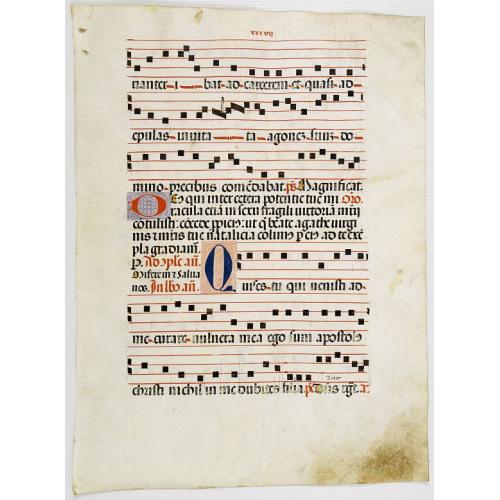 xxxvij
nanter i bat ad carcerem et quasi ad
epulas invita ta agonem suum do
mino precibus comēdabat. ps Magnificat.
Deus qui inter cetera potentie tue mi Oro.
racula etiā in sexu fragili victoriā mrij
cōtulisti: cōcede ppici9: ut q̄ beate agathe virgi
nis natalicia colim9 p ei9 ad te exē
pla gradiam̄.
Miserem̄ & Salua
nos. In
Quis es tu qui venisti ad
me curare vulnera mea ego sum apostol9
christi nichil in me dubites filia. ps